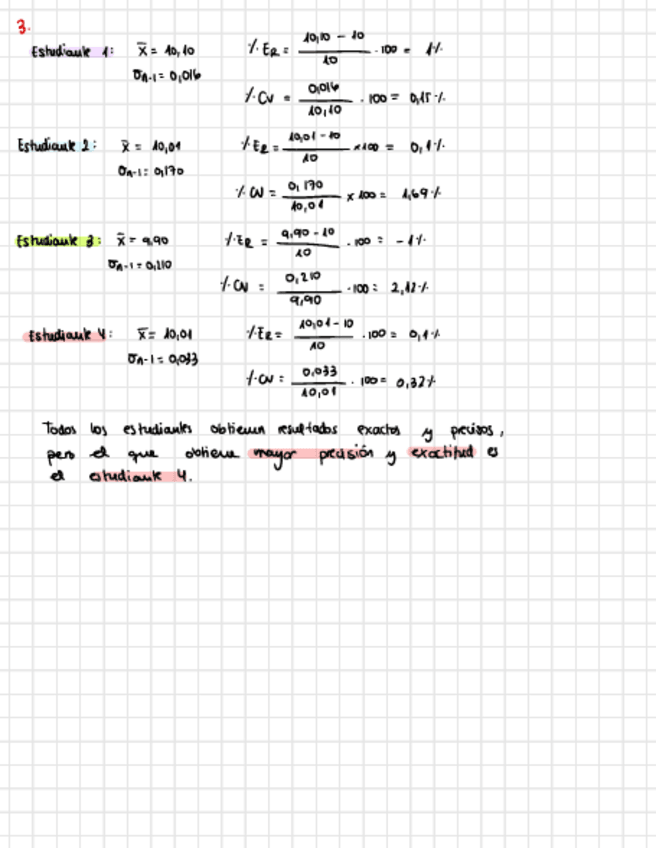 3.
Estudiante 1: x̄ = 10,10 %ER = (10,10 - 10)/10 · 100 = 1%
σn-1 = 0,016
%CV = 0,016/10,10 · 100 = 0,15%
Estudiante 2: x̄ = 10,01 %ER = (10,01 - 10)/10 x 100 = 0,1%
σn-1 = 0,170
%CV = 0,170/10,01 x 100 = 1,69%
Estudiante 3: x̄ = 9,90 %ER = (9,90 - 10)/10 · 100 = -1%
σn-1 = 0,210
%CV = 0,210/9,90 · 100 = 2,12%
Estudiante 4: x̄ = 10,01 %ER = (10,01 - 10)/10 · 100 = 0,1%
σn-1 = 0,033
%CV = 0,033/10,01 · 100 = 0,32%
Todos los estudiantes obtienen resultados exactos y precisos,
pero el que obtiene mayor precisión y exactitud es
el estudiante 4.